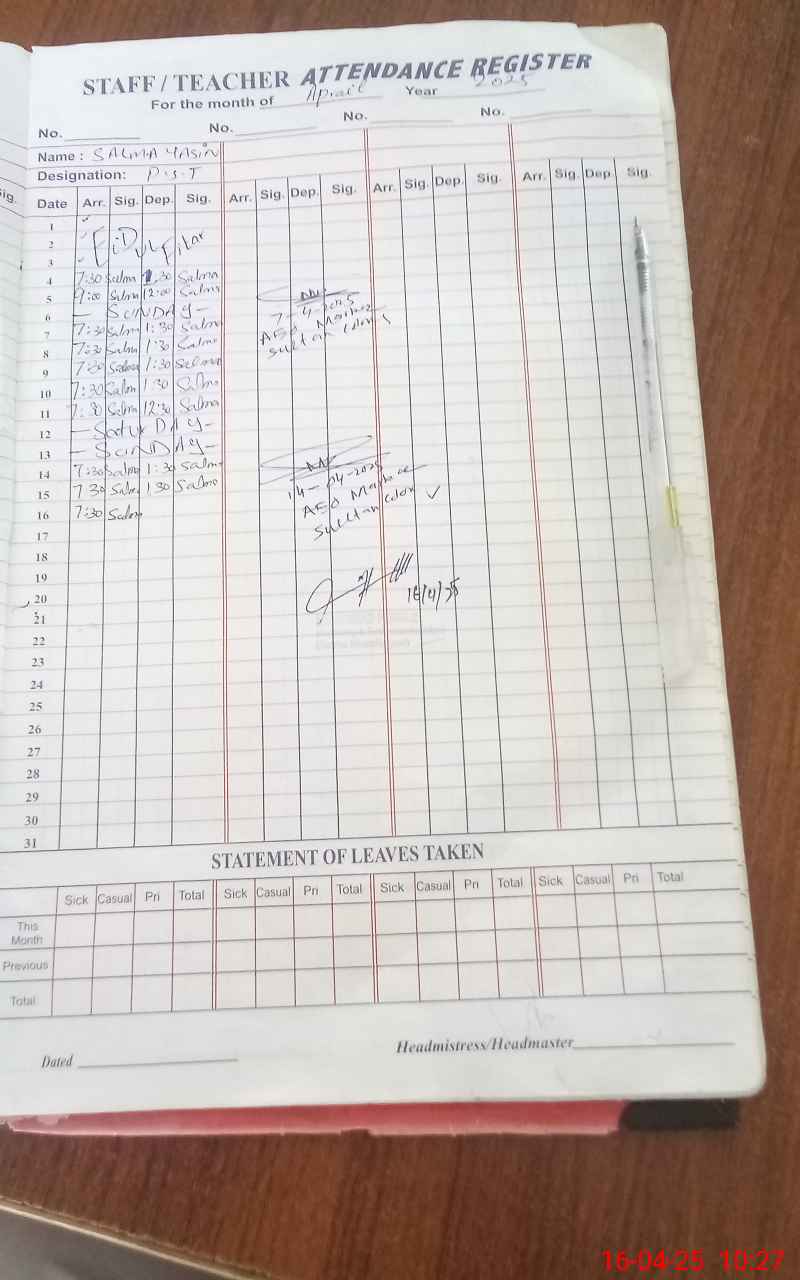 STAFF / TEACHER ATTENDANCE REGISTER
For the month of Aprail Year 2025
No. No. No. No.
Name : SALMA YASIN
Designation: P.S.T
Date Arr. Sig. Dep. Sig. Arr. Sig. Dep. Sig. Arr. Sig. Dep. Sig. Arr. Sig. Dep. Sig.
1
2 EiD UL Fitar
3
4 7:30 Salma 1:30 Salma
5 9:00 Salma 12:00 Salma
6 - SUNDAY -
7 7:30 Salma 1:30 Salma
8 7:30 Salm 1:30 Salma
9 7:30 Salma 1:30 Salma
10 7:30 Salm 1:30 Salma
11 7:30 Salma 12:30 Salma
12 - SaturDAY -
13 - SUNDAY -
14 7:30 Salma 1:30 Salma
15 7 30 Salm 1 30 Salma
16 7:30 Salma
17
18
19
20
21
22
23
24
25
26
27
28
29
30
31
7-4-2025
AEO
Sultan Colony
14-04-2025
AEO
Sultan Colony
16/4/25
STATEMENT OF LEAVES TAKEN
Sick Casual Pri Total Sick Casual Pri Total Sick Casual Pri Total Sick Casual Pri Total
This Month
Previous
Total
Dated Headmistress/Headmaster
16-04-25 10:27